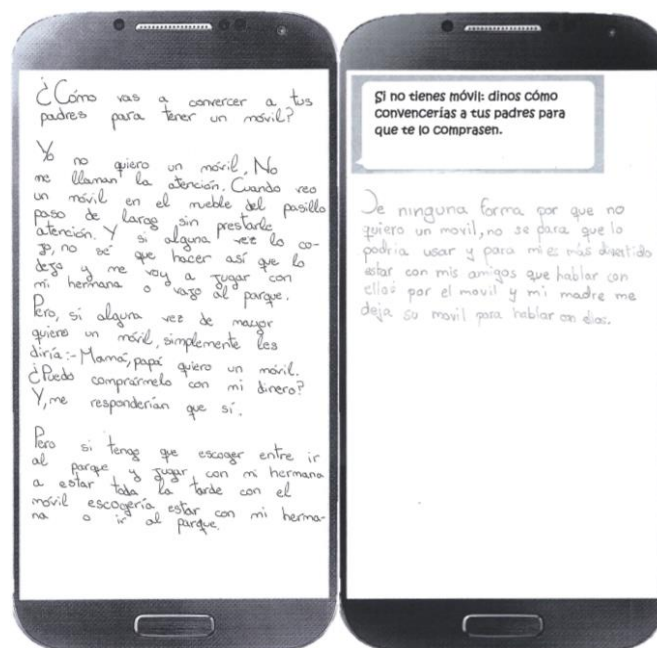 ¿Cómo vas a convercer a tus
padres para tener un móvil?
Yo no quiero un móvil. No
me llaman la atención. Cuando veo
un móvil en el mueble del pasillo
paso de largo sin prestarle
atención. Y si alguna vez lo co-
jo, no sé que hacer así que lo
dejo y me voy a jugar con
mi hermana o vajo al parque.
Pero, si alguna vez de mayor
quiero un móvil, simplemente les
diría:-Mamá, papá quiero un móvil.
¿Puedo comprármelo con mi dinero?
Y, me responderían que sí.
Pero si tengo que escoger entre ir
al parque y jugar con mi hermana
a estar toda la tarde con el
móvil escogería estar con mi herma-
na o ir al parque.
Si no tienes móvil: dinos cómo
convencerías a tus padres para
que te lo comprasen.
De ninguna forma por que no
quiero un movil, no se para que lo
podria usar y para mi es más divertido
estar con mis amigos que hablar con
ellos por el movil y mi madre me
deja su movil para hablar con ellos.